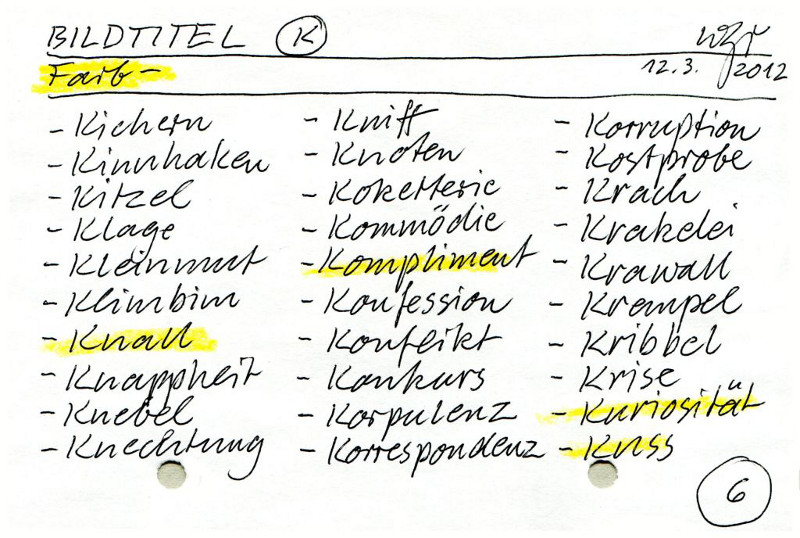 BILDTITEL K
12.3. 2012
Farb-
- Kichern
- Kinnhaken
- Kitzel
- Klage
- Kleinmut
- Klimbim
- Knall
- Knappheit
- Knebel
- Knechtung
- Kniff
- Knoten
- Koketterie
- Kommödie
- Kompliment
- Konfession
- Konflikt
- Konkurs
- Korpulenz
- Korrespondenz
- Korruption
- Kostprobe
- Krach
- Krakelei
- Krawall
- Krempel
- Kribbel
- Krise
- Kuriosität
- Kuss
6